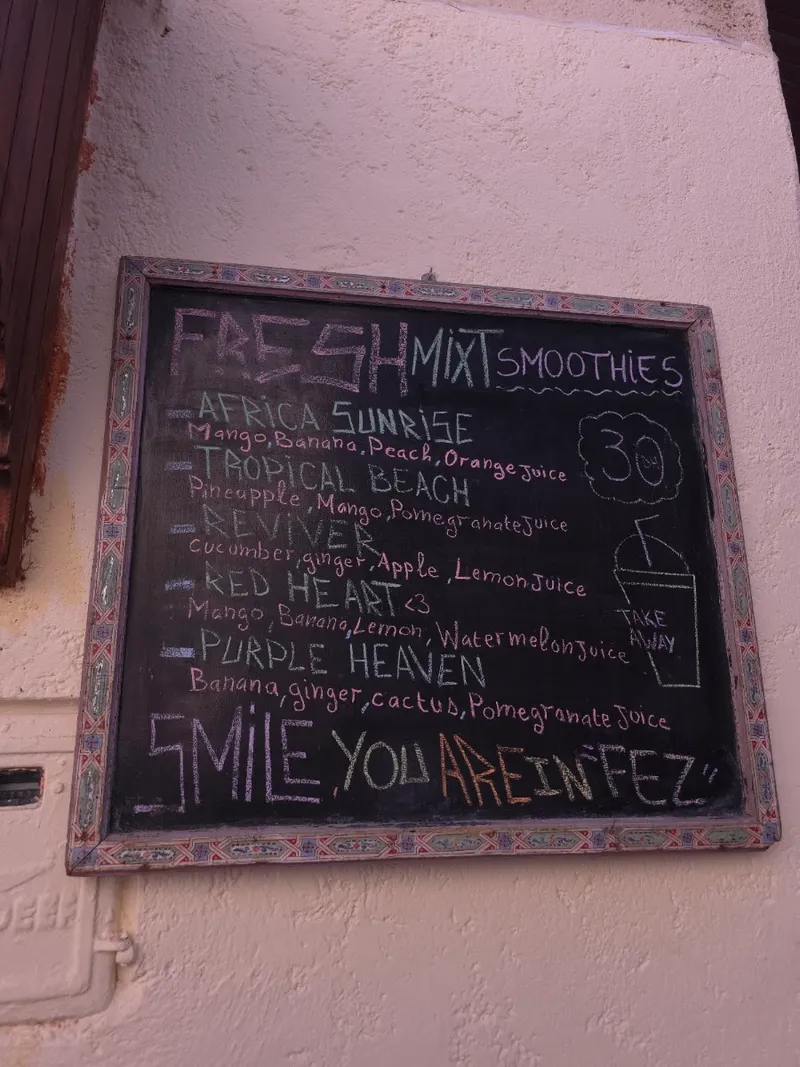 FRESH MIXT SMOOTHIES
- AFRICA SUNRISE
Mango, Banana, Peach, Orange Juice
30 DH
- TROPICAL BEACH
Pineapple, Mango, Pomegranate Juice
- REVIVER
cucumber, ginger, Apple, Lemon Juice
- RED HEART <3
Mango, Banana, Lemon, Watermelon Juice
TAKE
AWAY
- PURPLE HEAVEN
Banana, ginger, cactus, Pomegranate Juice
SMILE, YOU ARE IN "FEZ"